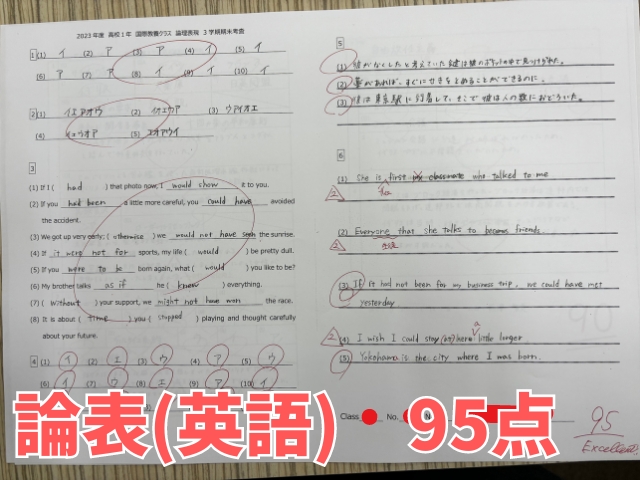 2023年度 高校1年 国際教養クラス 論理表現 3学期期末考査
1 (1) イ (2) ア (3) ア (4) イ (5) イ
(6) ア (7) ア (8) イ (9) イ (10) イ
2 (1) イエアオウ (2) イオエウア (3) ウアイオエ
(4) (5) エオアウイ
3
(1) If I ( had ) that photo now, I would show it to you.
(2) If you had been a little more careful, you could have avoided
the accident.
(3) We got up very early; ( otherwise ) we would not have seen the sunrise.
(4) If it were not for sports, my life ( would ) be pretty dull.
(5) If you were to be born again, what ( would ) you like to be?
(6) My brother talks as if he ( knew ) everything.
(7) ( Without ) your support, we might not have won the race.
(8) It is about ( time ) you ( stopped ) playing and thought carefully
about your future.
4 (1) イ (2) エ (3) ウ (4) ア (5) ウ
(6) イ (7) ウ (8) エ (9) ア (10) イ
5
(1) 彼がなくしたと考えていた鍵は彼のポケットの中で見つけられた。
(2)
(3)
6
(1) She is first my classmate who talked to me
2
(2) Everyone that she talks to becomes friends.
2
(3) If it had not been for my business trip, we could have met
yesterday
2 (4) I wish I could stay (at) here a little longer
(5) Yokohama is the city where I was born.
Class No.
95
Excellent
論表(英語) 95点